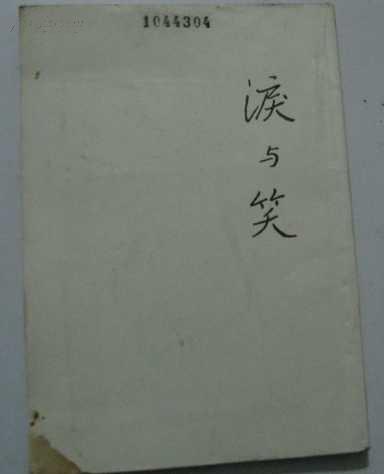 1044304
淚
与
笑